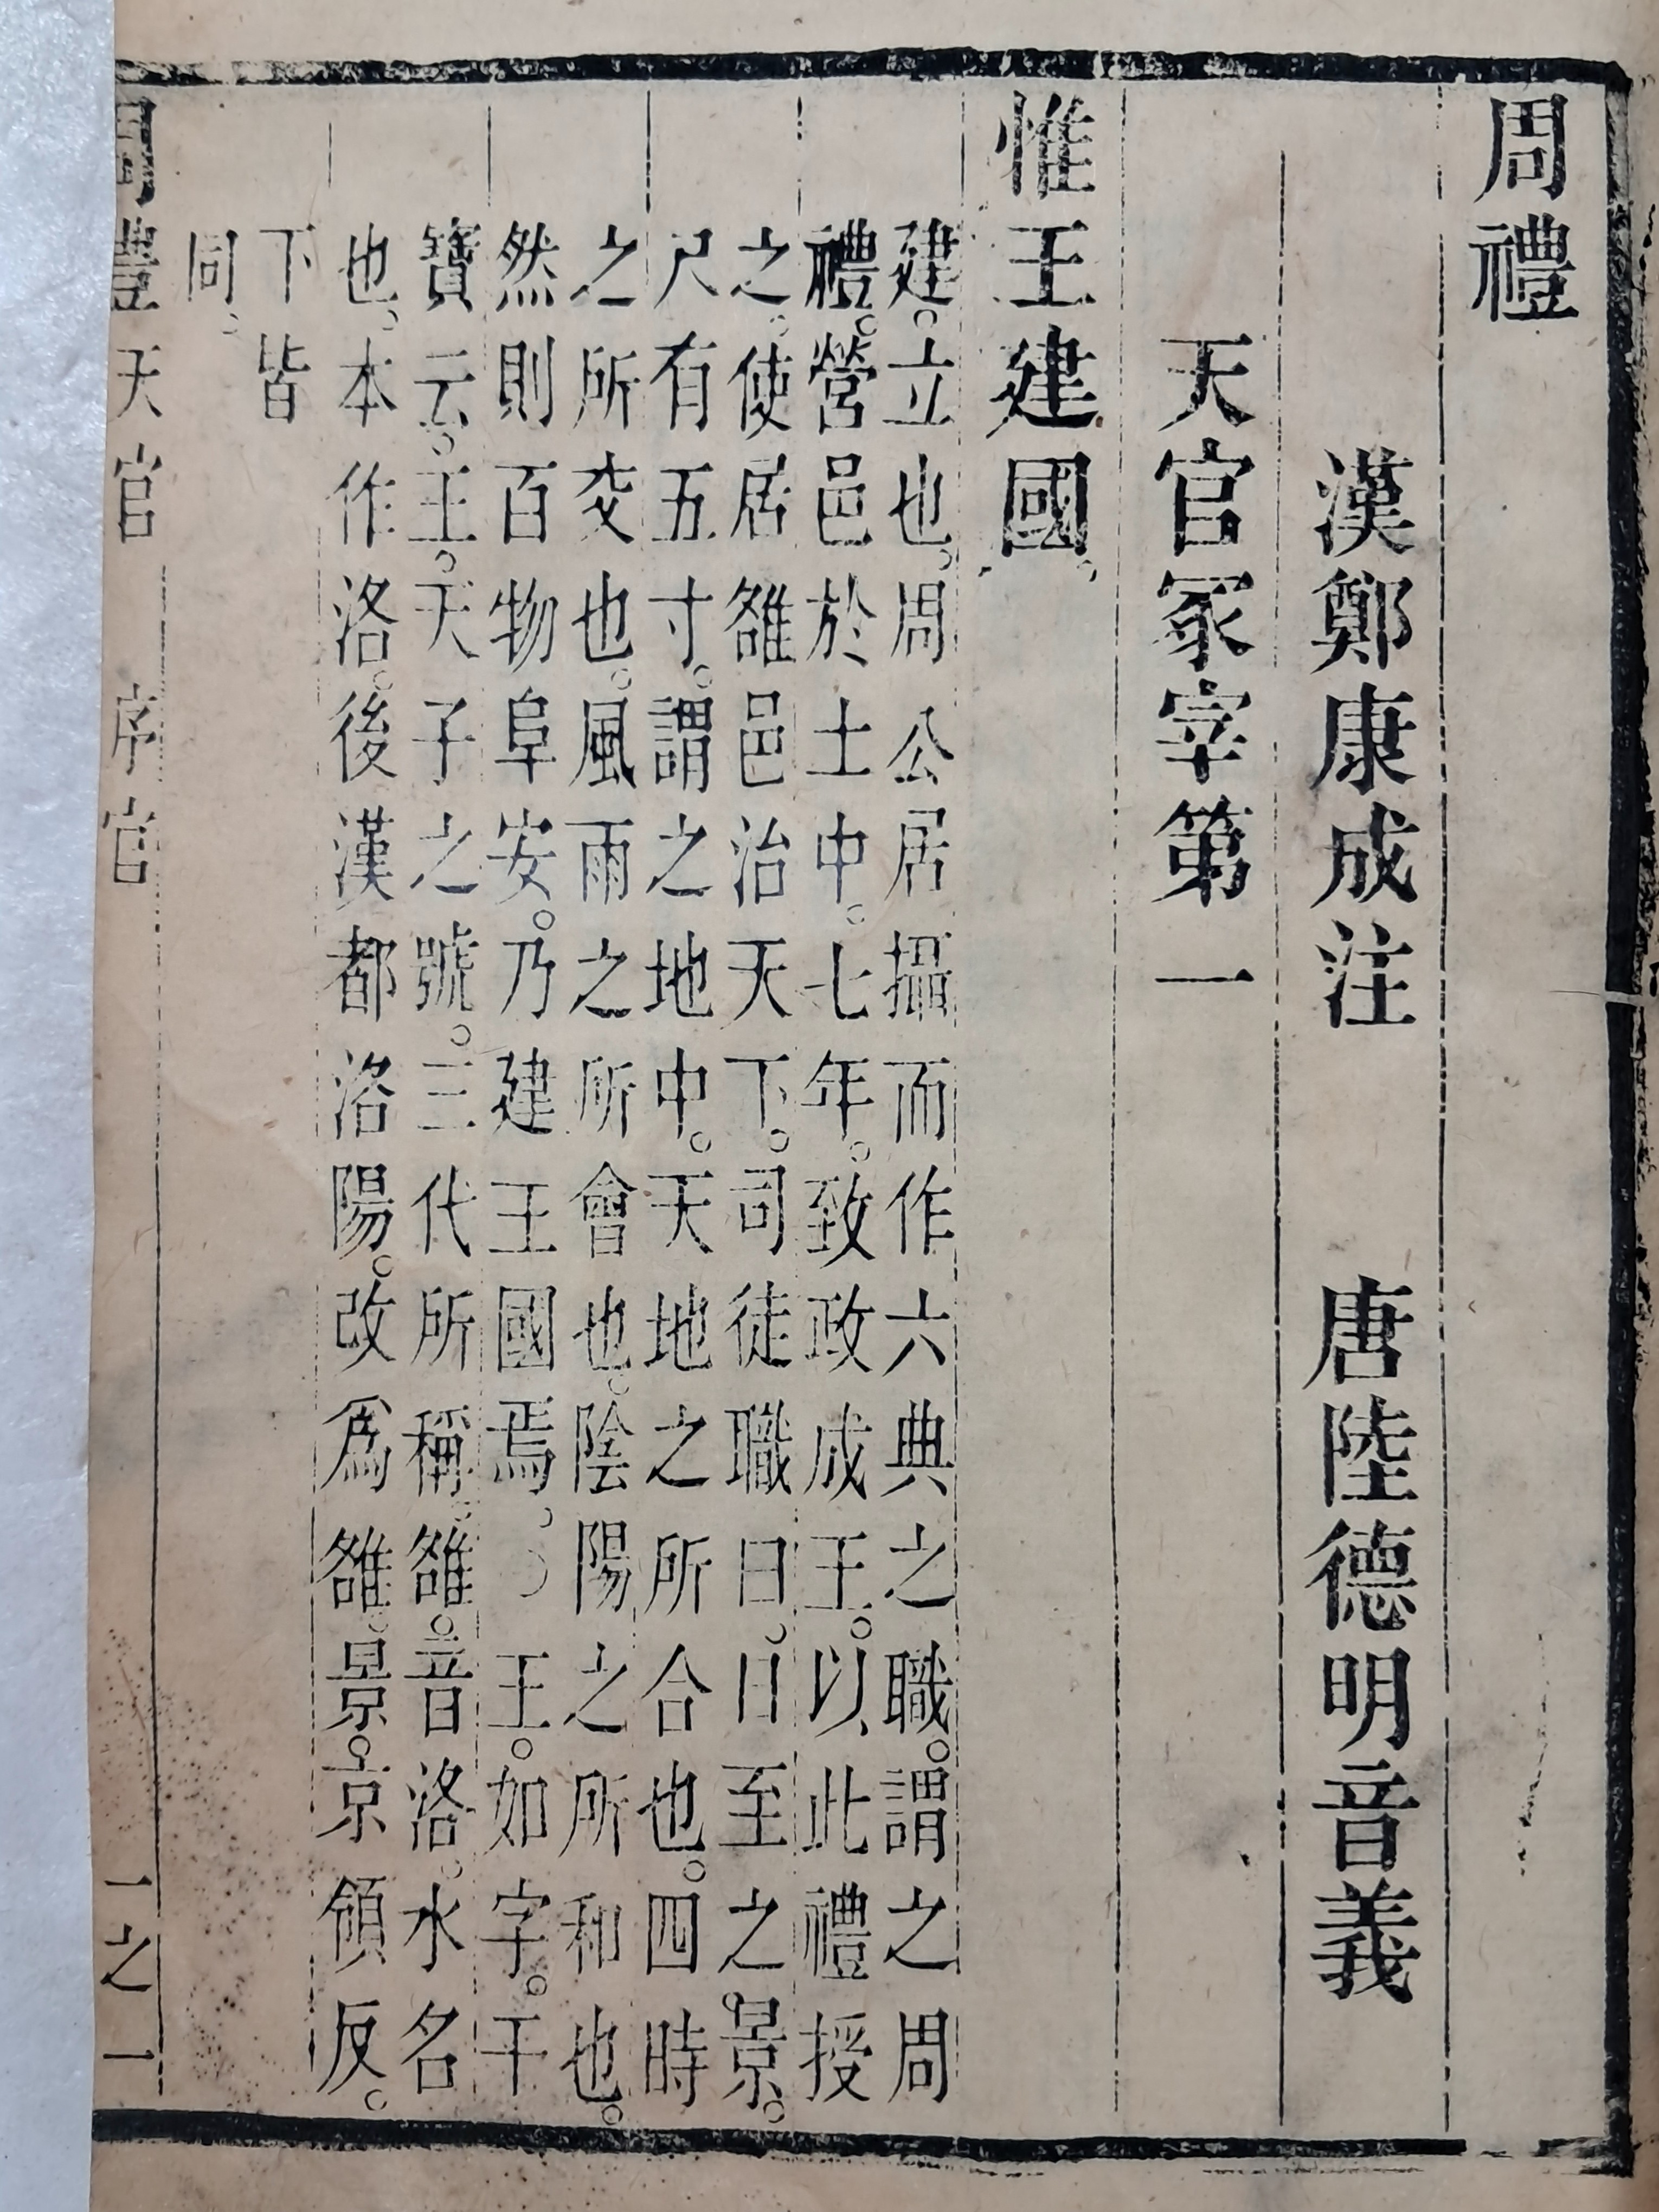 周禮
漢鄭康成注　唐陸德明音義
天官冢宰第一
惟王建國、
建。立也。周公居攝而作六典之職。謂之周
禮。營邑於土中。七年。致政成王。以此禮授
之。使居雒邑治天下。司徒職曰。日至之景。
尺有五寸。謂之地中。天地之所合也。四時
之所交也。風雨之所會也。陰陽之所和也。
然則百物阜安。乃建王國焉。○王。如字。干
寶云。王。天子之號。三代所稱。雒。音洛。水名
也。本作洛。後漢都洛陽。改爲雒。景。京領反。
下皆
同。
周豊天官　序官　一之一